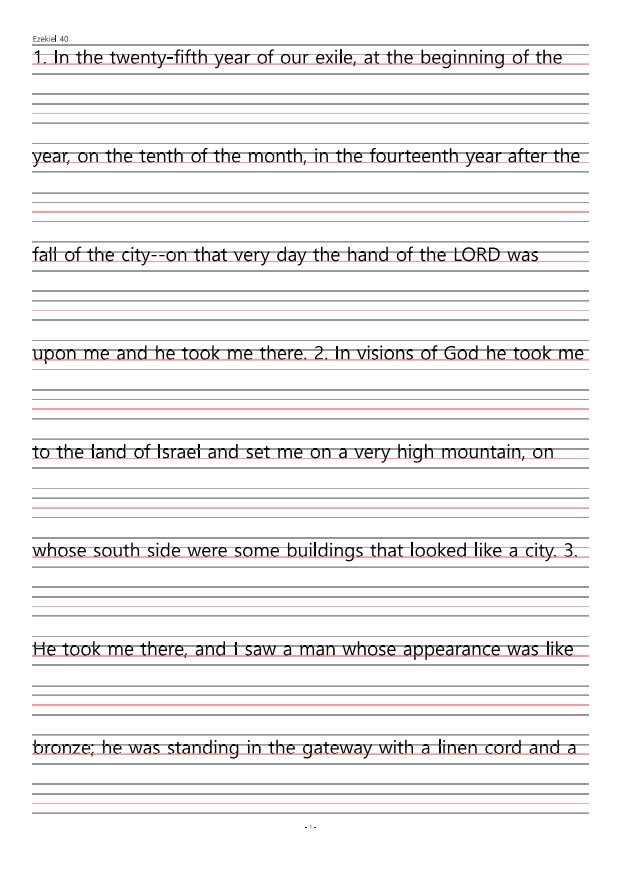 Ezekiel 40
1. In the twenty-fifth year of our exile, at the beginning of the
year, on the tenth of the month, in the fourteenth year after the
fall of the city--on that very day the hand of the LORD was
upon me and he took me there. 2. In visions of God he took me
to the land of Israel and set me on a very high mountain, on
whose south side were some buildings that looked like a city. 3.
He took me there, and I saw a man whose appearance was like
bronze; he was standing in the gateway with a linen cord and a
- 1 -